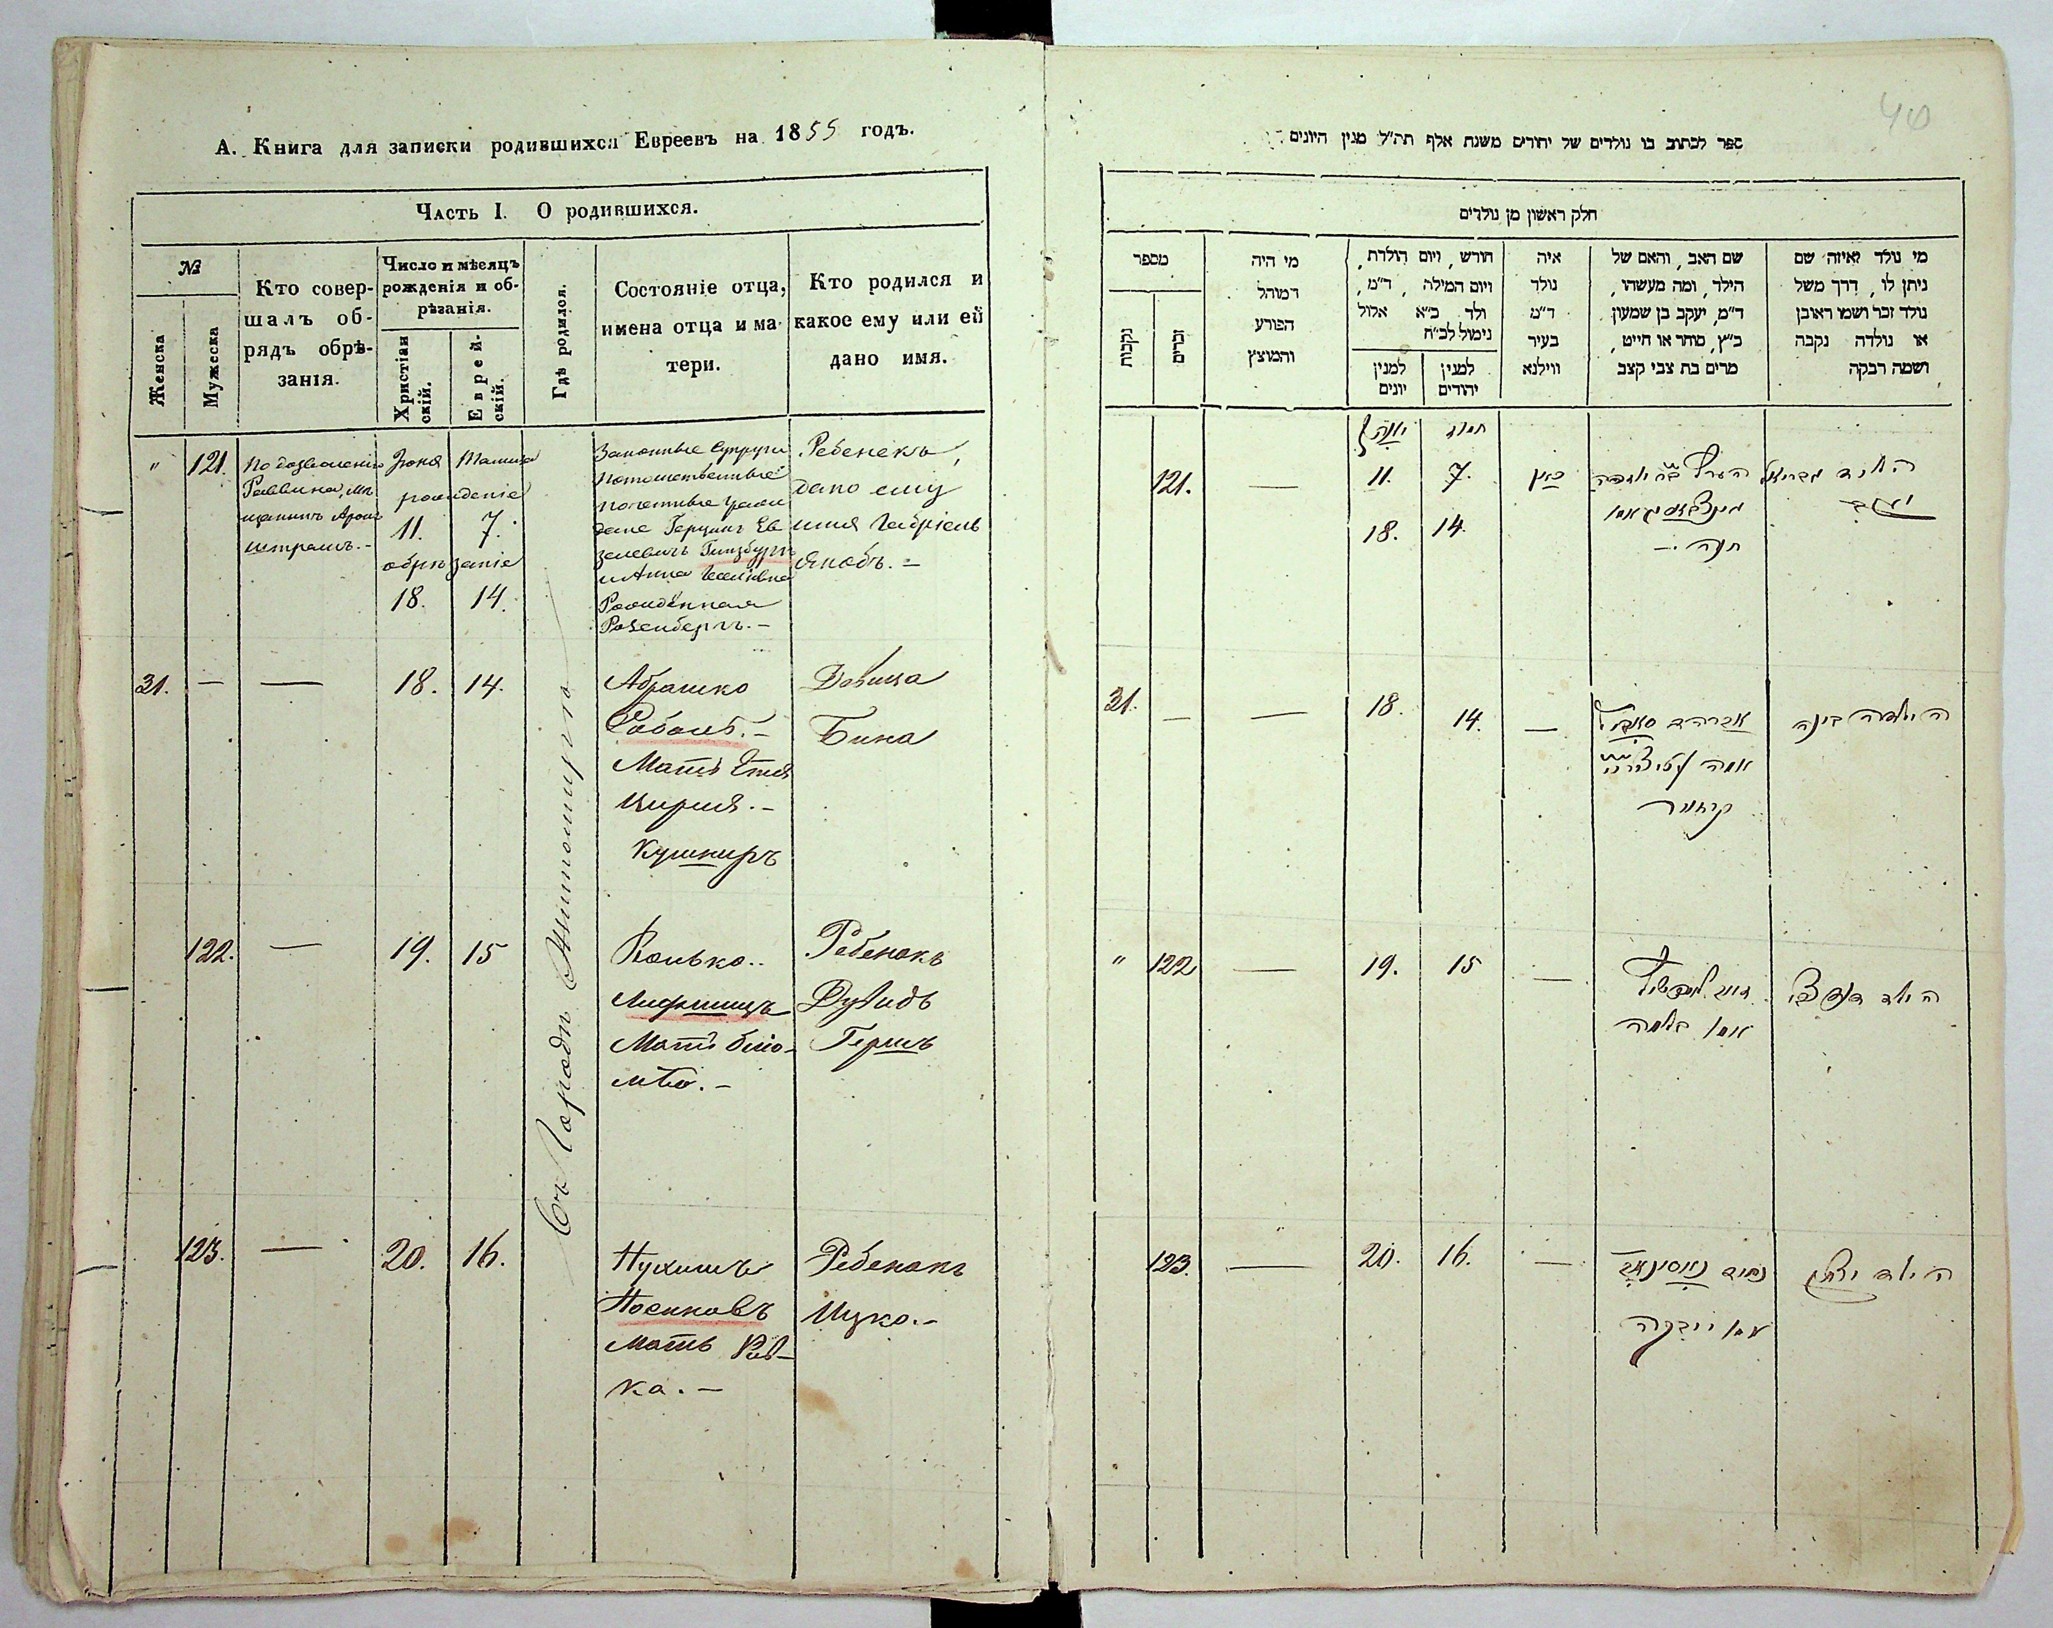 А. Книга для записки родившихся Евреевъ на 1855 годъ.
Часть I. О родившихся.
№
Женска
Мужеска
Кто совер-
шалъ об-
рядъ обрѣ-
занія.
Число и мѣсяцъ
рожденія и об-
рѣзанія.
Христіан
скій.
Еврей-
скій.
Гдѣ родился.
Состояніе отца,
имена отца и ма-
тери.
Кто родился и
какое ему или ей
дано имя.
"
121.
По дозволенію
Раввина, мѣ
щанинъ Аронъ
Іюня Тамиза
рожденіе
11. 7.
обрѣзаніе
18. 14.
Законные супруги
потомственные
почетные граж
дане Герцикъ Ев
зелевичъ Гинзбургъ
и Анна
Рожденная
Розенбергъ. —
Ребенекъ,
дано ему
имя Габріель
Якобъ. —
Въ Городѣ Житомирѣ
31. — — 18. 14.
Абрашко
Мать Етя
Цирля. —
Кушниръ
Девица
Бина
122. — 19. 15
Лифшицъ
Мать Блю-
ма. —
Ребенокъ
Дувидъ
Гершъ
123. — 20. 16.
Нухимъ
Носиковъ
Мать Рив-
ка. —
Ребенокъ
Ицко. —
40
ספר לכתוב בו נולדים של יהודים משנת אלף תה"ל מנין היונים
חלק ראשון מן נולדים
מספר
נקבות
זכרים
מי היה
המוהל
הפורע
והמוצץ
חודש, ויום הולדת,
ויום המילה, ד"מ,
ולד כ"א אלול
נימול לכ"ח
למנין
יונים
למנין
יהודים
איה
נולד
ד"מ
בעיר
ווילנא
שם האב, והאם של
הילד, ומה מעשהו,
ד"מ, יעקב בן שמעון
כ"ץ, סוחר או חייט,
מרים בת צבי קצב
מי נולד ואיזה שם
ניתן לו, דרך משל
נולד זכר ושמו ראובן
או נולדה נקבה
ושמה רבקה
121. — 11. 7.
18. 14.
הילד גבריאל
יעקב
חנה. —
31. — — 18. 14. —
אברהם
אמה
הילדה בינה
" 122 — 19. 15 —
אמו בלומה
הילד דוד צבי
123. — 20. 16. —
נחום
אמו ריבקה
הילד יצחק